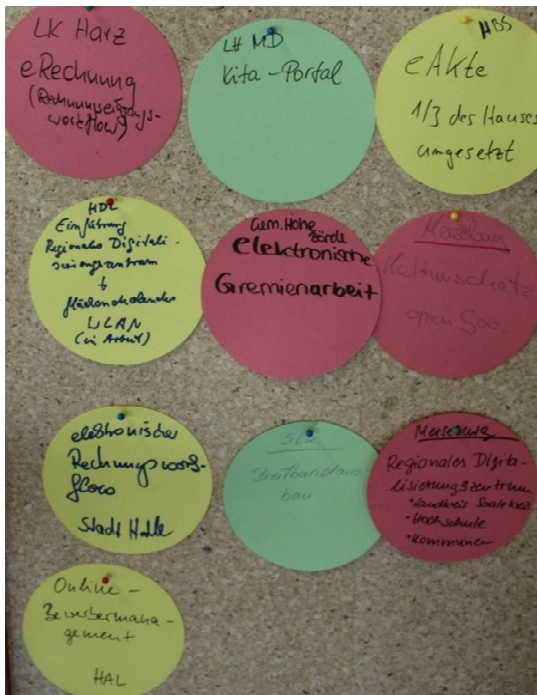 LK Harz
eRechnung
(Rechnungseingangs-
workflow)
LH MD
Kita-Portal
HBS
eAkte
1/3 des Hauses
umgesetzt
HDL
Einführung
Regionales Digitali-
sierungszentrum
+
flächendeckendes
WLAN
(in Arbeit)
Gem. Hohe
Börde
elektronische
Gremienarbeit
Merseburg
Kulturschätze
open
elektronischer
Rechnungswork-
flow
Stadt Halle
Breitbandaus-
bau
Merseburg
Regionales Digita-
lisierungszentrum
• Landkreis Saalekreis
• Hochschule
• Kommunen
Online-
Bewerbermana-
gement
HAL